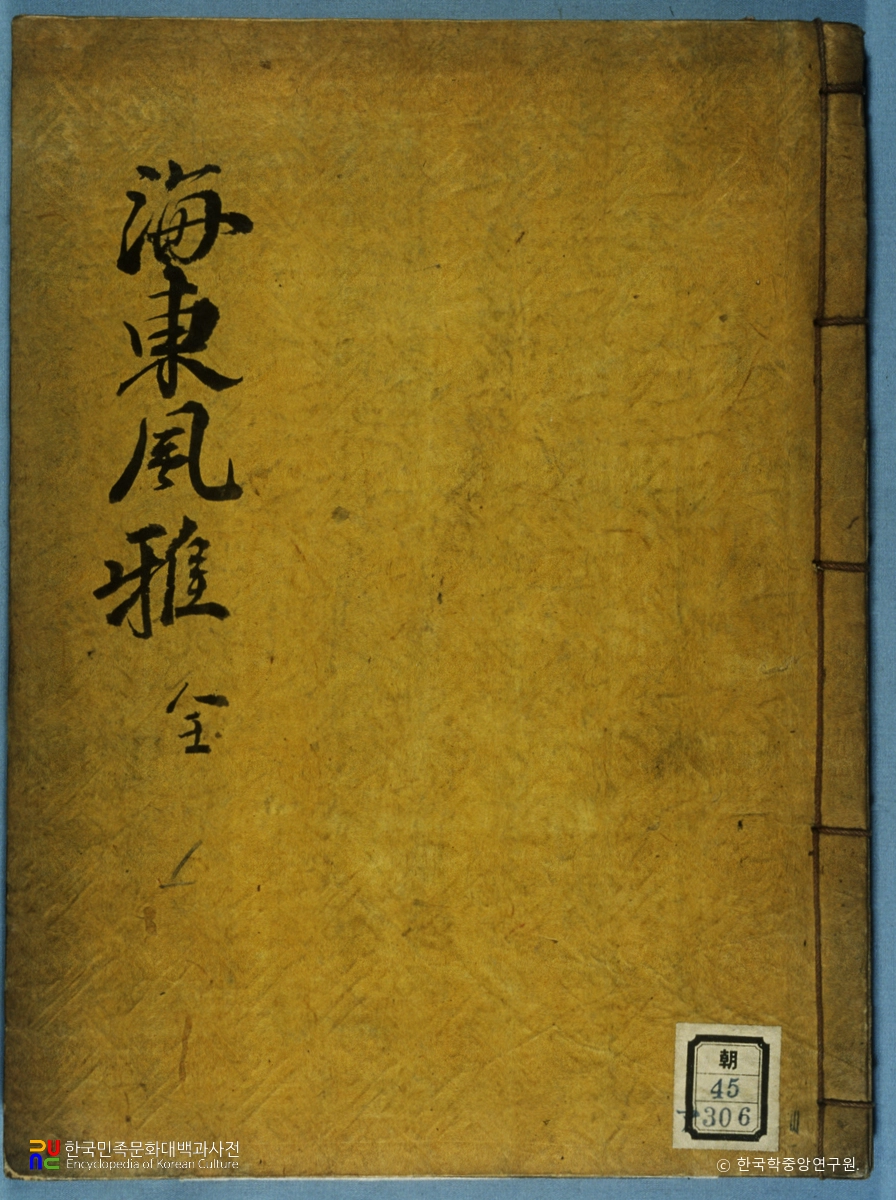 海東風雅 全
朝
45
306
한국민족문화대백과사전
Encyclopedia of Korean Culture
© 한국학중앙연구원.